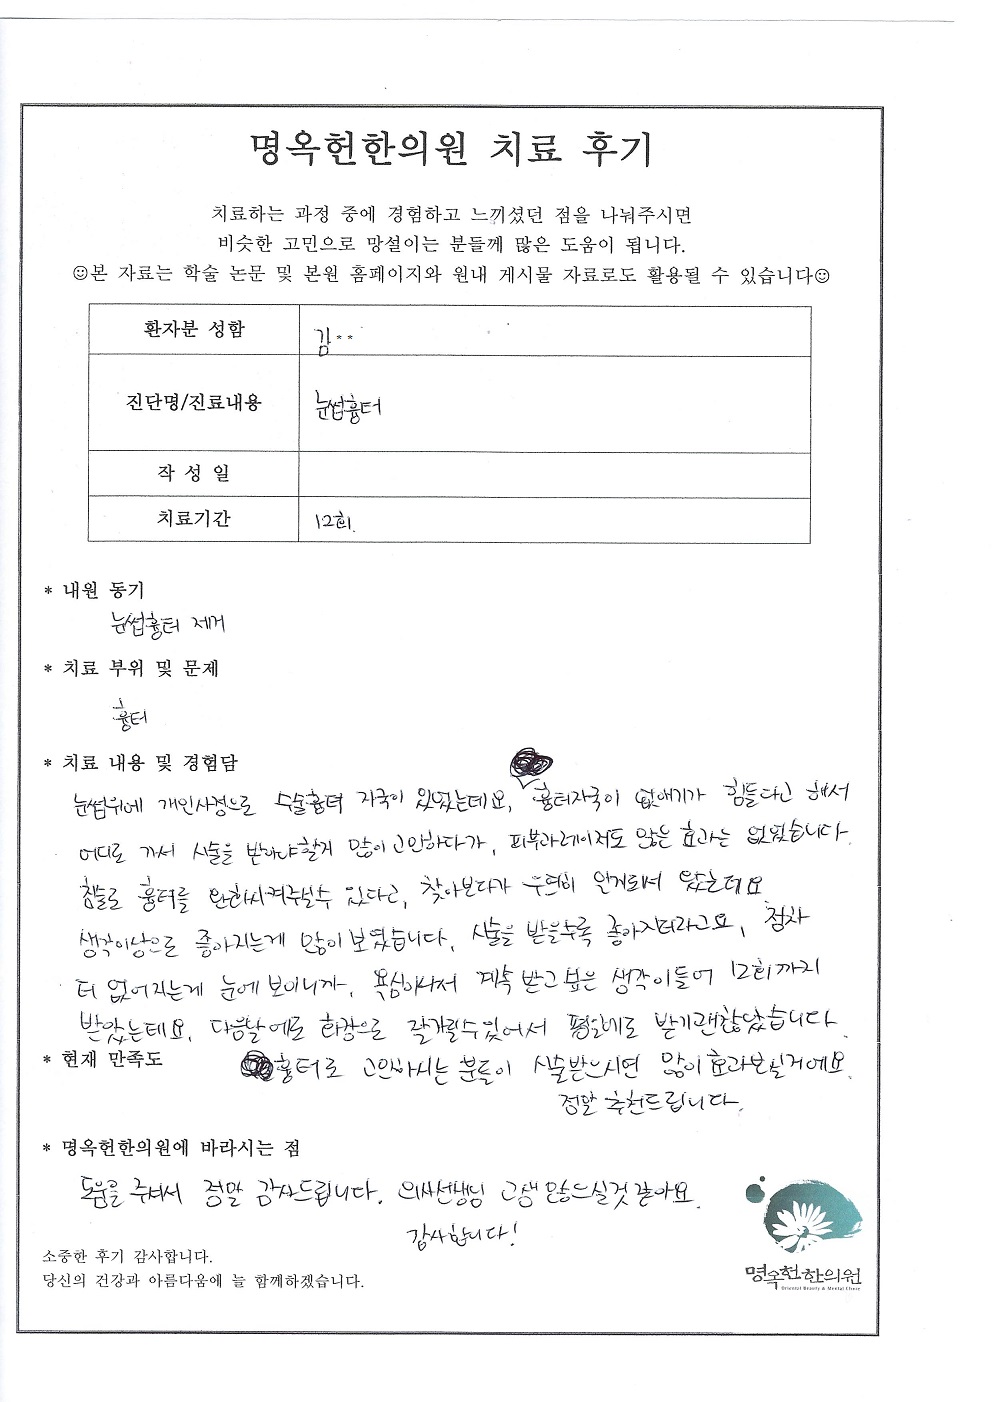 명옥헌한의원 치료 후기
치료하는 과정 중에 경험하고 느끼셨던 점을 나눠주시면
비슷한 고민으로 망설이는 분들께 많은 도움이 됩니다.
☺본 자료는 학술 논문 및 본원 홈페이지와 원내 게시물 자료로도 활용될 수 있습니다☺
환자분 성함 김**
진단명/진료내용 눈썹흉터
작 성 일
치료기간 12회.
* 내원 동기
눈썹흉터 제거
* 치료 부위 및 문제
흉터
* 치료 내용 및 경험담
눈썹위에 개인사정으로 수술흉터 자국이 있었는데요, 흉터자국이 없애기가 힘들다고 해서
어디로 가서 시술을 받아야할지 많이 고민하다가, 피부과레이저도 많은 효과는 없었습니다.
침술로 흉터를 완화시켜주실수 있다고, 찾아보다가 우연히 알게되서 왔는데요
생각이상으로 좋아지는게 많이 보였습니다, 시술을 받을수록 좋아지더라고요, 점차
더 없어지는게 눈에 보이니까, 욕심이나서 계속 받고 싶은 생각이들어 12회까지
받았는데요, 다음날에도 화장으로 잘가릴수있어서 평일에도 받기괜찮았습니다.
* 현재 만족도
흉터로 고민하시는 분들이 시술받으시면 많이 효과보실거에요.
정말 추천드립니다.
* 명옥헌한의원에 바라시는 점
도움을 주셔서 정말 감사드립니다. 의사선생님 고생 많으실것 같아요.
감사합니다!
소중한 후기 감사합니다.
당신의 건강과 아름다움에 늘 함께하겠습니다.
명옥헌한의원
Oriental Beauty & Mental Clinic